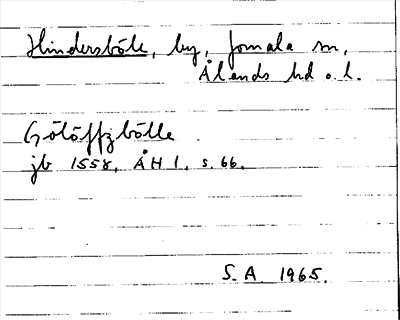 Hindersböle, by, Jomala sn,
Ålands hd o. l.
Götöffzbölle
jb 1558, ÅH 1, s. 66.
S. A. 1965.